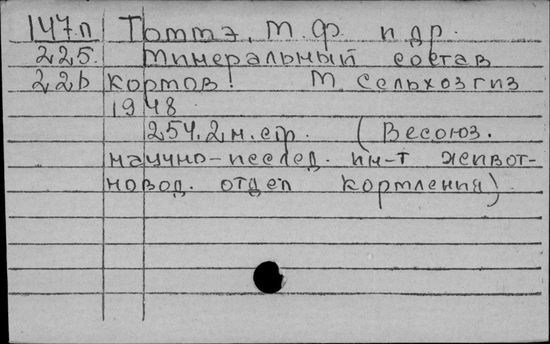 147.п Томмэ, М. Ф. и др.
225. Минеральный состав
226 кормов. М. Сельхозгиз
1948
254, 2 н. стр. (Весоюз.
научно-исслед. ин-т живот-
новод. отдел кормления)